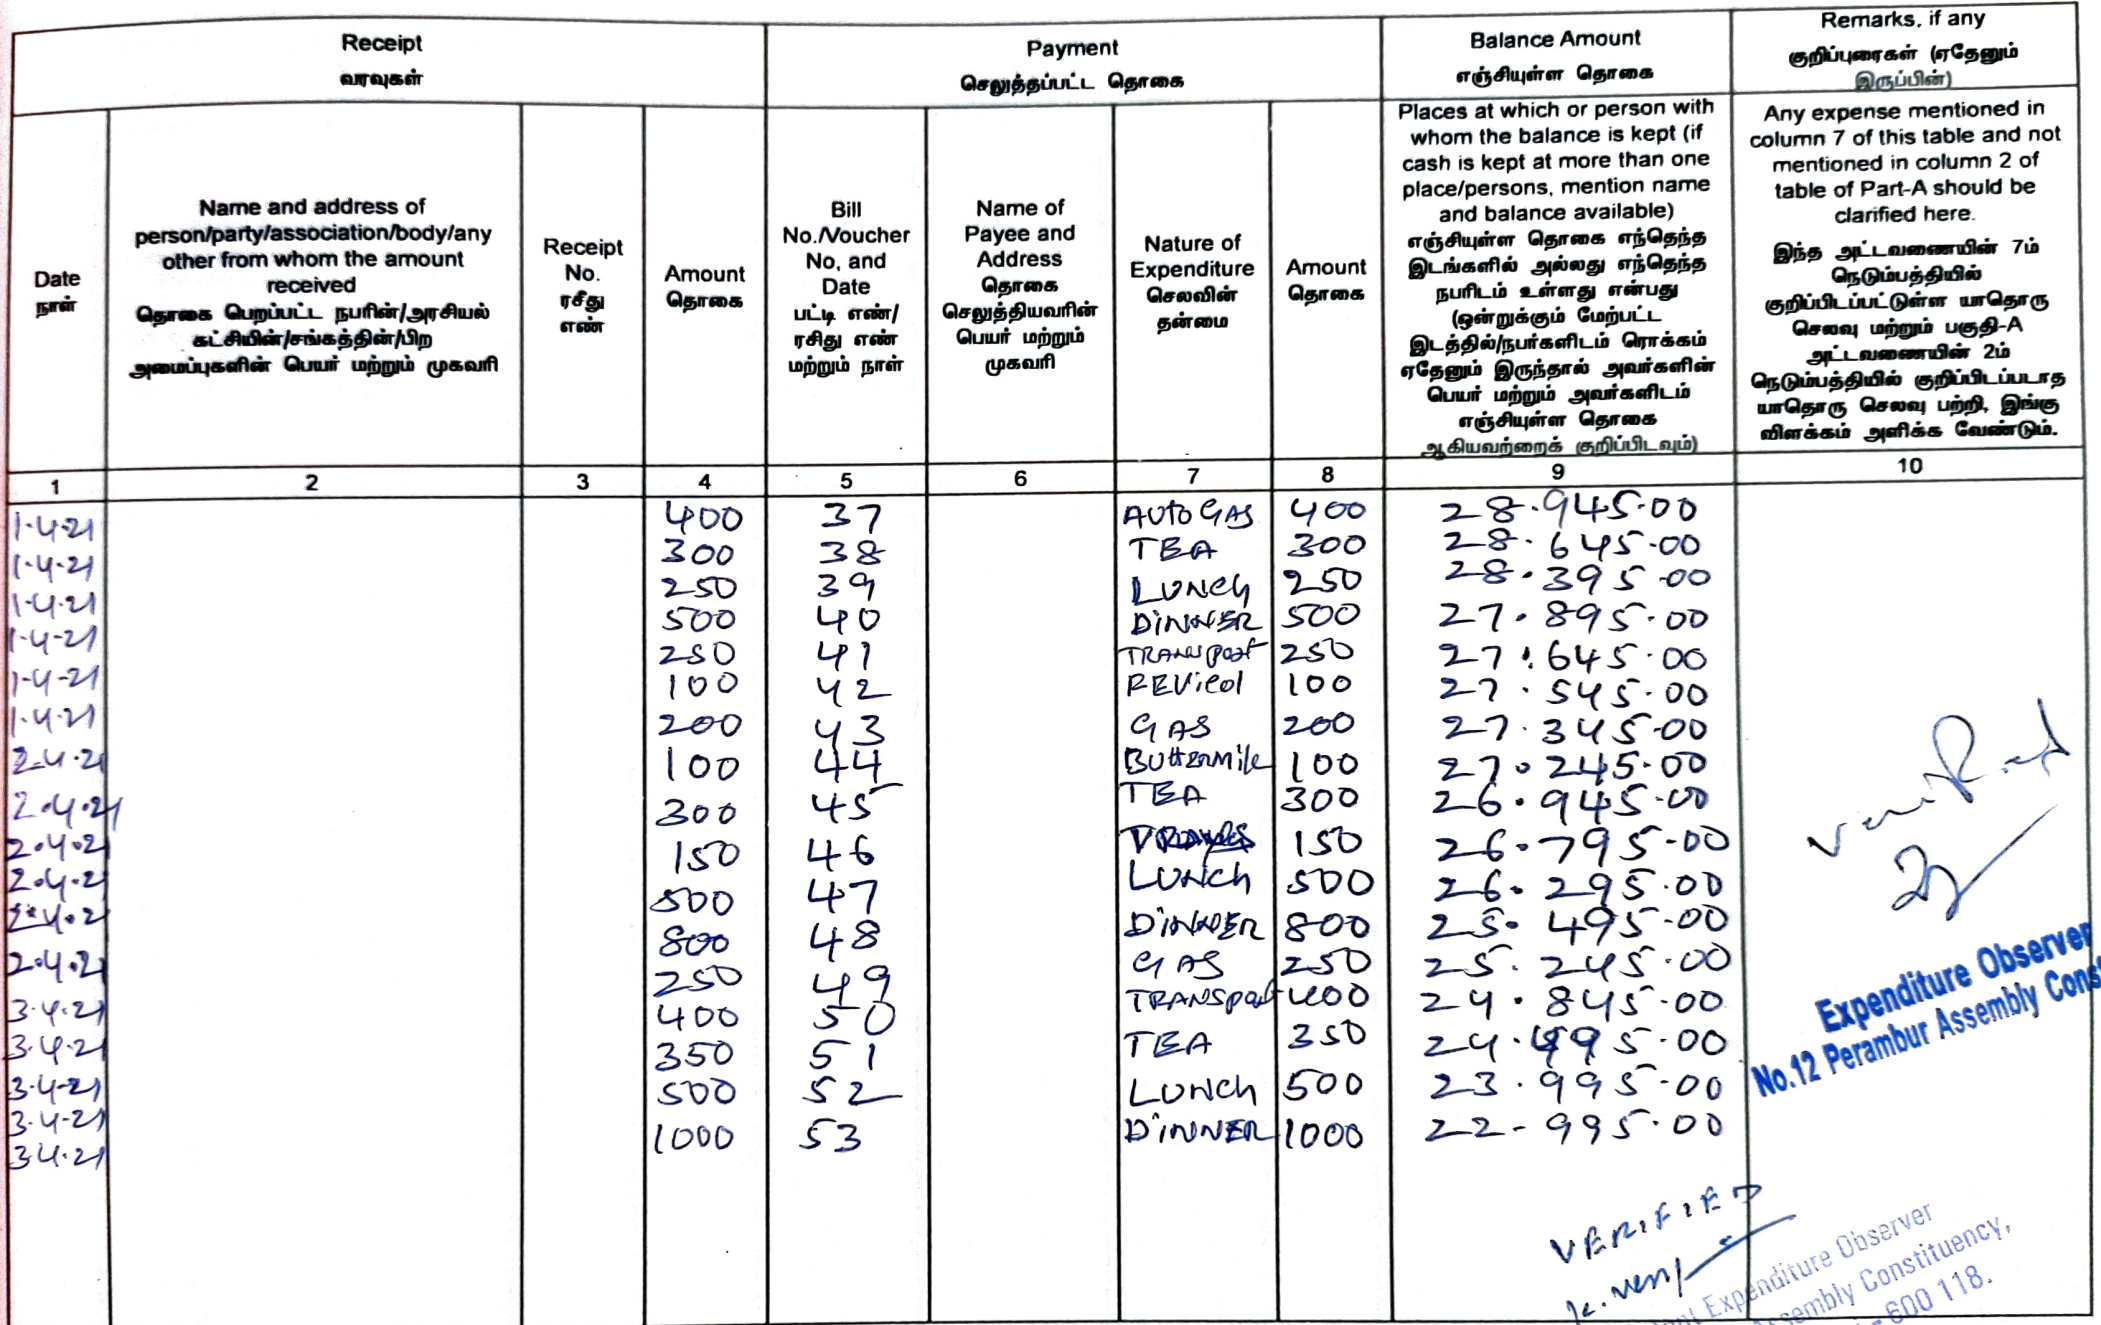 Receipt
வரவுகள்
Payment
செலுத்தப்பட்ட தொகை
Balance Amount
எஞ்சியுள்ள தொகை
Remarks, if any
குறிப்புரைகள் (ஏதேனும்
இருப்பின்)
Date
நாள்
Name and address of
person/party/association/body/any
other from whom the amount
received
தொகை பெறப்பட்ட நபரின்/அரசியல்
கட்சியின்/சங்கத்தின்/பிற
அமைப்புகளின் பெயர் மற்றும் முகவரி
Receipt
No.
ரசீது
எண்
Amount
தொகை
Bill
No./Voucher
No, and
Date
பட்டி எண்/
ரசிது எண்
மற்றும் நாள்
Name of
Payee and
Address
தொகை
செலுத்தியவரின்
பெயர் மற்றும்
முகவரி
Nature of
Expenditure
செலவின்
தன்மை
Amount
தொகை
Places at which or person with
whom the balance is kept (if
cash is kept at more than one
place/persons, mention name
and balance available)
எஞ்சியுள்ள தொகை எந்தெந்த
இடங்களில் அல்லது எந்தெந்த
நபரிடம் உள்ளது என்பது
(ஒன்றுக்கும் மேற்பட்ட
இடத்தில்/நபர்களிடம் ரொக்கம்
ஏதேனும் இருந்தால் அவர்களின்
பெயர் மற்றும் அவர்களிடம்
எஞ்சியுள்ள தொகை
ஆகியவற்றைக் குறிப்பிடவும்)
Any expense mentioned in
column 7 of this table and not
mentioned in column 2 of
table of Part-A should be
clarified here.
இந்த அட்டவணையின் 7ம்
நெடும்பத்தியில்
குறிப்பிடப்பட்டுள்ள யாதொரு
செலவு மற்றும் பகுதி-A
அட்டவணையின் 2ம்
நெடும்பத்தியில் குறிப்பிடப்படாத
யாதொரு செலவு பற்றி, இங்கு
விளக்கம் அளிக்க வேண்டும்.
1 2 3 4 5 6 7 8 9 10
1-4-21 400 37 AUTO GAS 400 28.945.00
1-4-21 300 38 TEA 300 28.645.00
1-4-21 250 39 LUNCH 250 28.395.00
1-4-21 500 40 DINNER 500 27.895.00
1-4-21 250 41 TRANSPORT 250 27.645.00
1-4-21 100 42 REVicol 100 27.545.00
2-4-21 200 43 GAS 200 27.345.00
2.4.21 100 44 ButtERMilk 100 27.245.00
2.4.21 300 45 TEA 300 26.945.00
2.4.21 150 46 150 26.795.00
2.4.21 500 47 LUNCH 500 26.295.00
2.4.21 800 48 DINNER 800 25.495.00
3.4.21 250 49 GAS 250 25.245.00
3.4.21 400 50 TRANSport 400 24.845.00
3-4-21 350 51 TEA 350 24.495.00
3.4-21 500 52 LUNCH 500 23.995.00
34.21 1000 53 DINNER 1000 22-995.00
Expenditure Observer
No.12 Perambur Assembly Const
VERIFIED
Expenditure Observer
Assembly Constituency,
- 600 118.